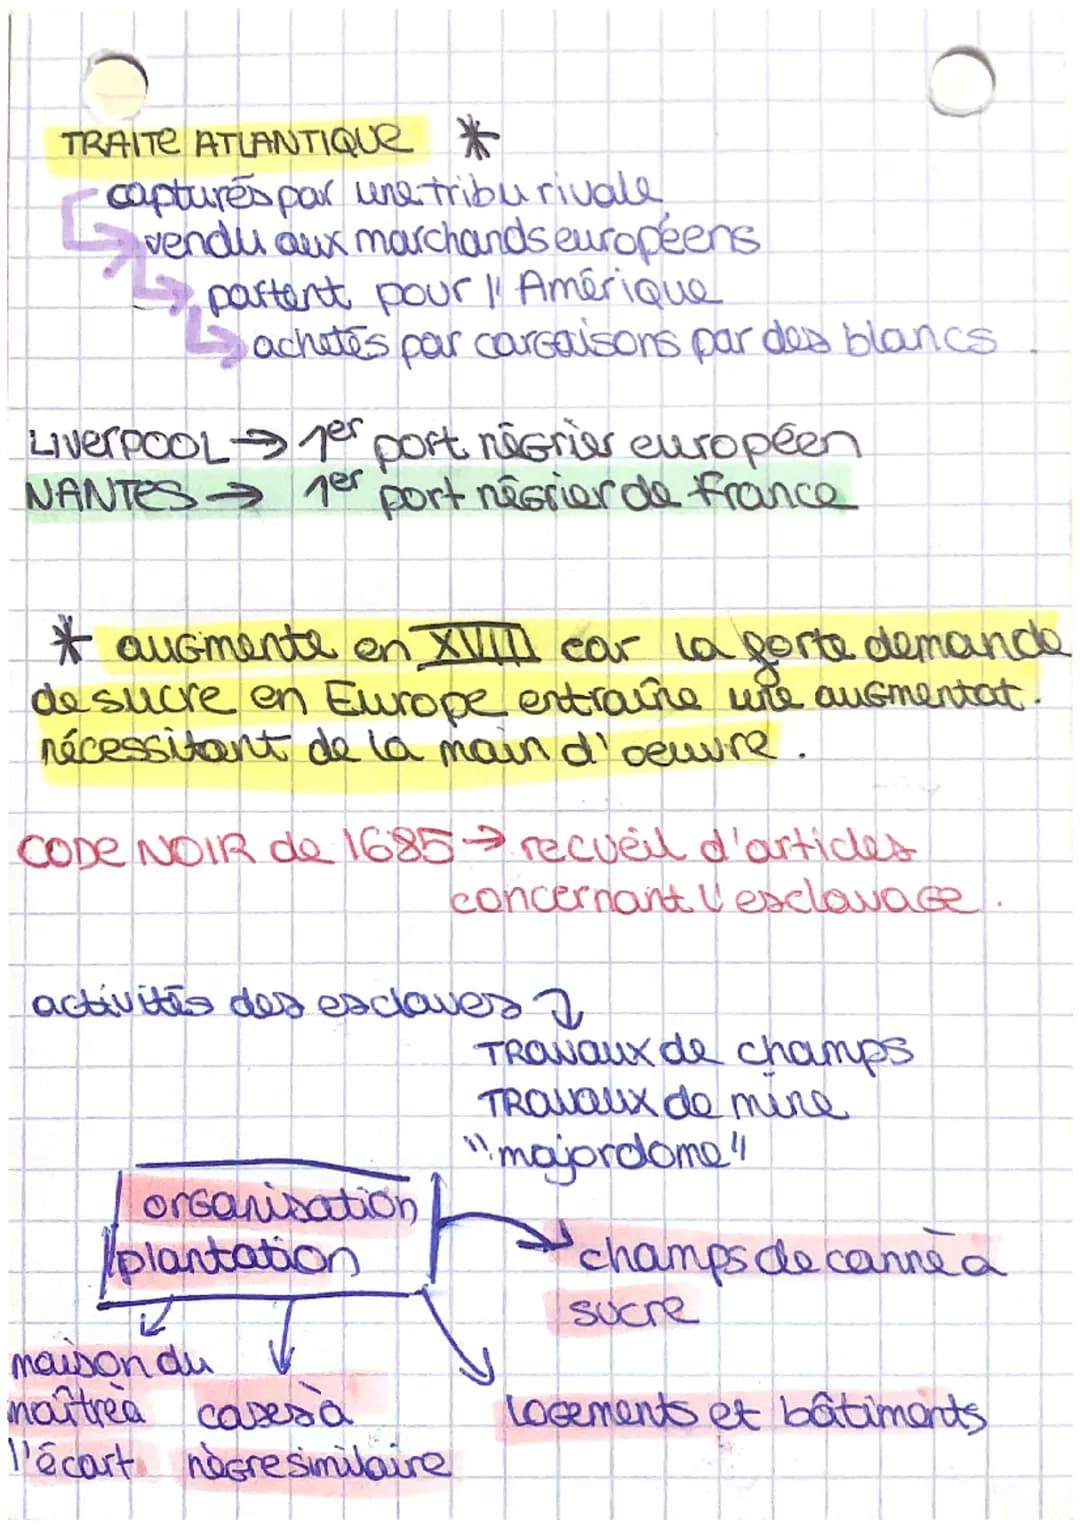 TRAITE ATLANTIQUE *
capturés par une tribu rivale
vendu aux marchands européens
partent pour l'Amérique
achetés par cargaisons par des blancs.
LIVERPOOL → 1er port négrier européen
NANTES → 1er port négrier de France
* augmente en XVIII car la forte demande
de sucre en Europe entraîne une augmentat.
nécessitant de la main d'oeuvre.
CODE NOIR de 1685 → recueil d'articles
concernant l'esclavage.
activités des esclaves
TRAVAUX de champs
TRAVAUX de mine
"majordome"
organisation
plantation
champs de canne à
sucre
maison du
maître à
l'écart
cases à
nègre similaire
logements et bâtiments